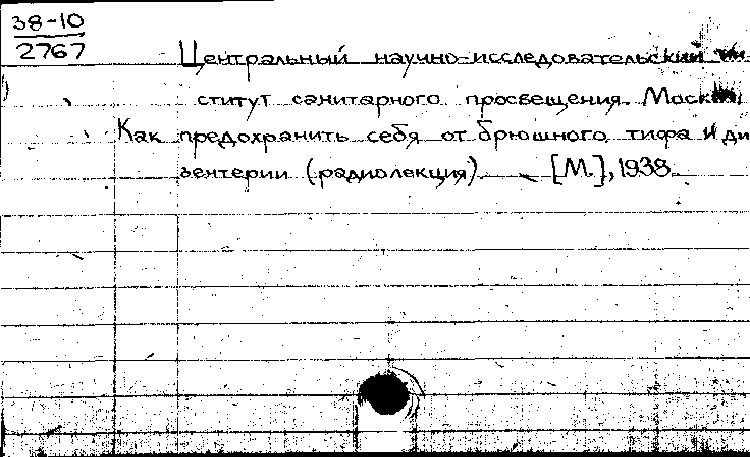 38-10
2767
Центральный научно-исследовательский ин
ститут санитарного просвещения. Москва,
Как предохранить себя от брюшного тифа и ди
зентерии (радиолекция) [М.], 1938.